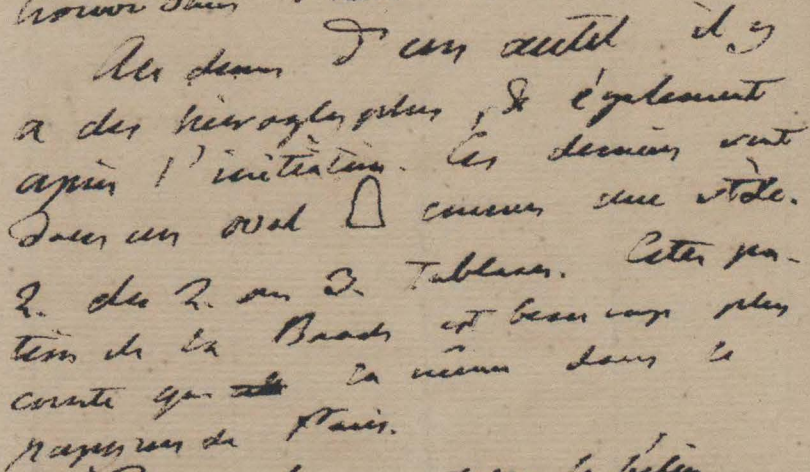 trouve dans
Au dessus d'un autel il y
a des hieroglyphes, & également
après l'initiation. Ces derniers sont
dans un oval comme une stèle.
2. des 2. ou 3. Tableaux. Cette par-
tie de la Bande est beaucoup plus
courte que la même dans le
papyrus de Paris.